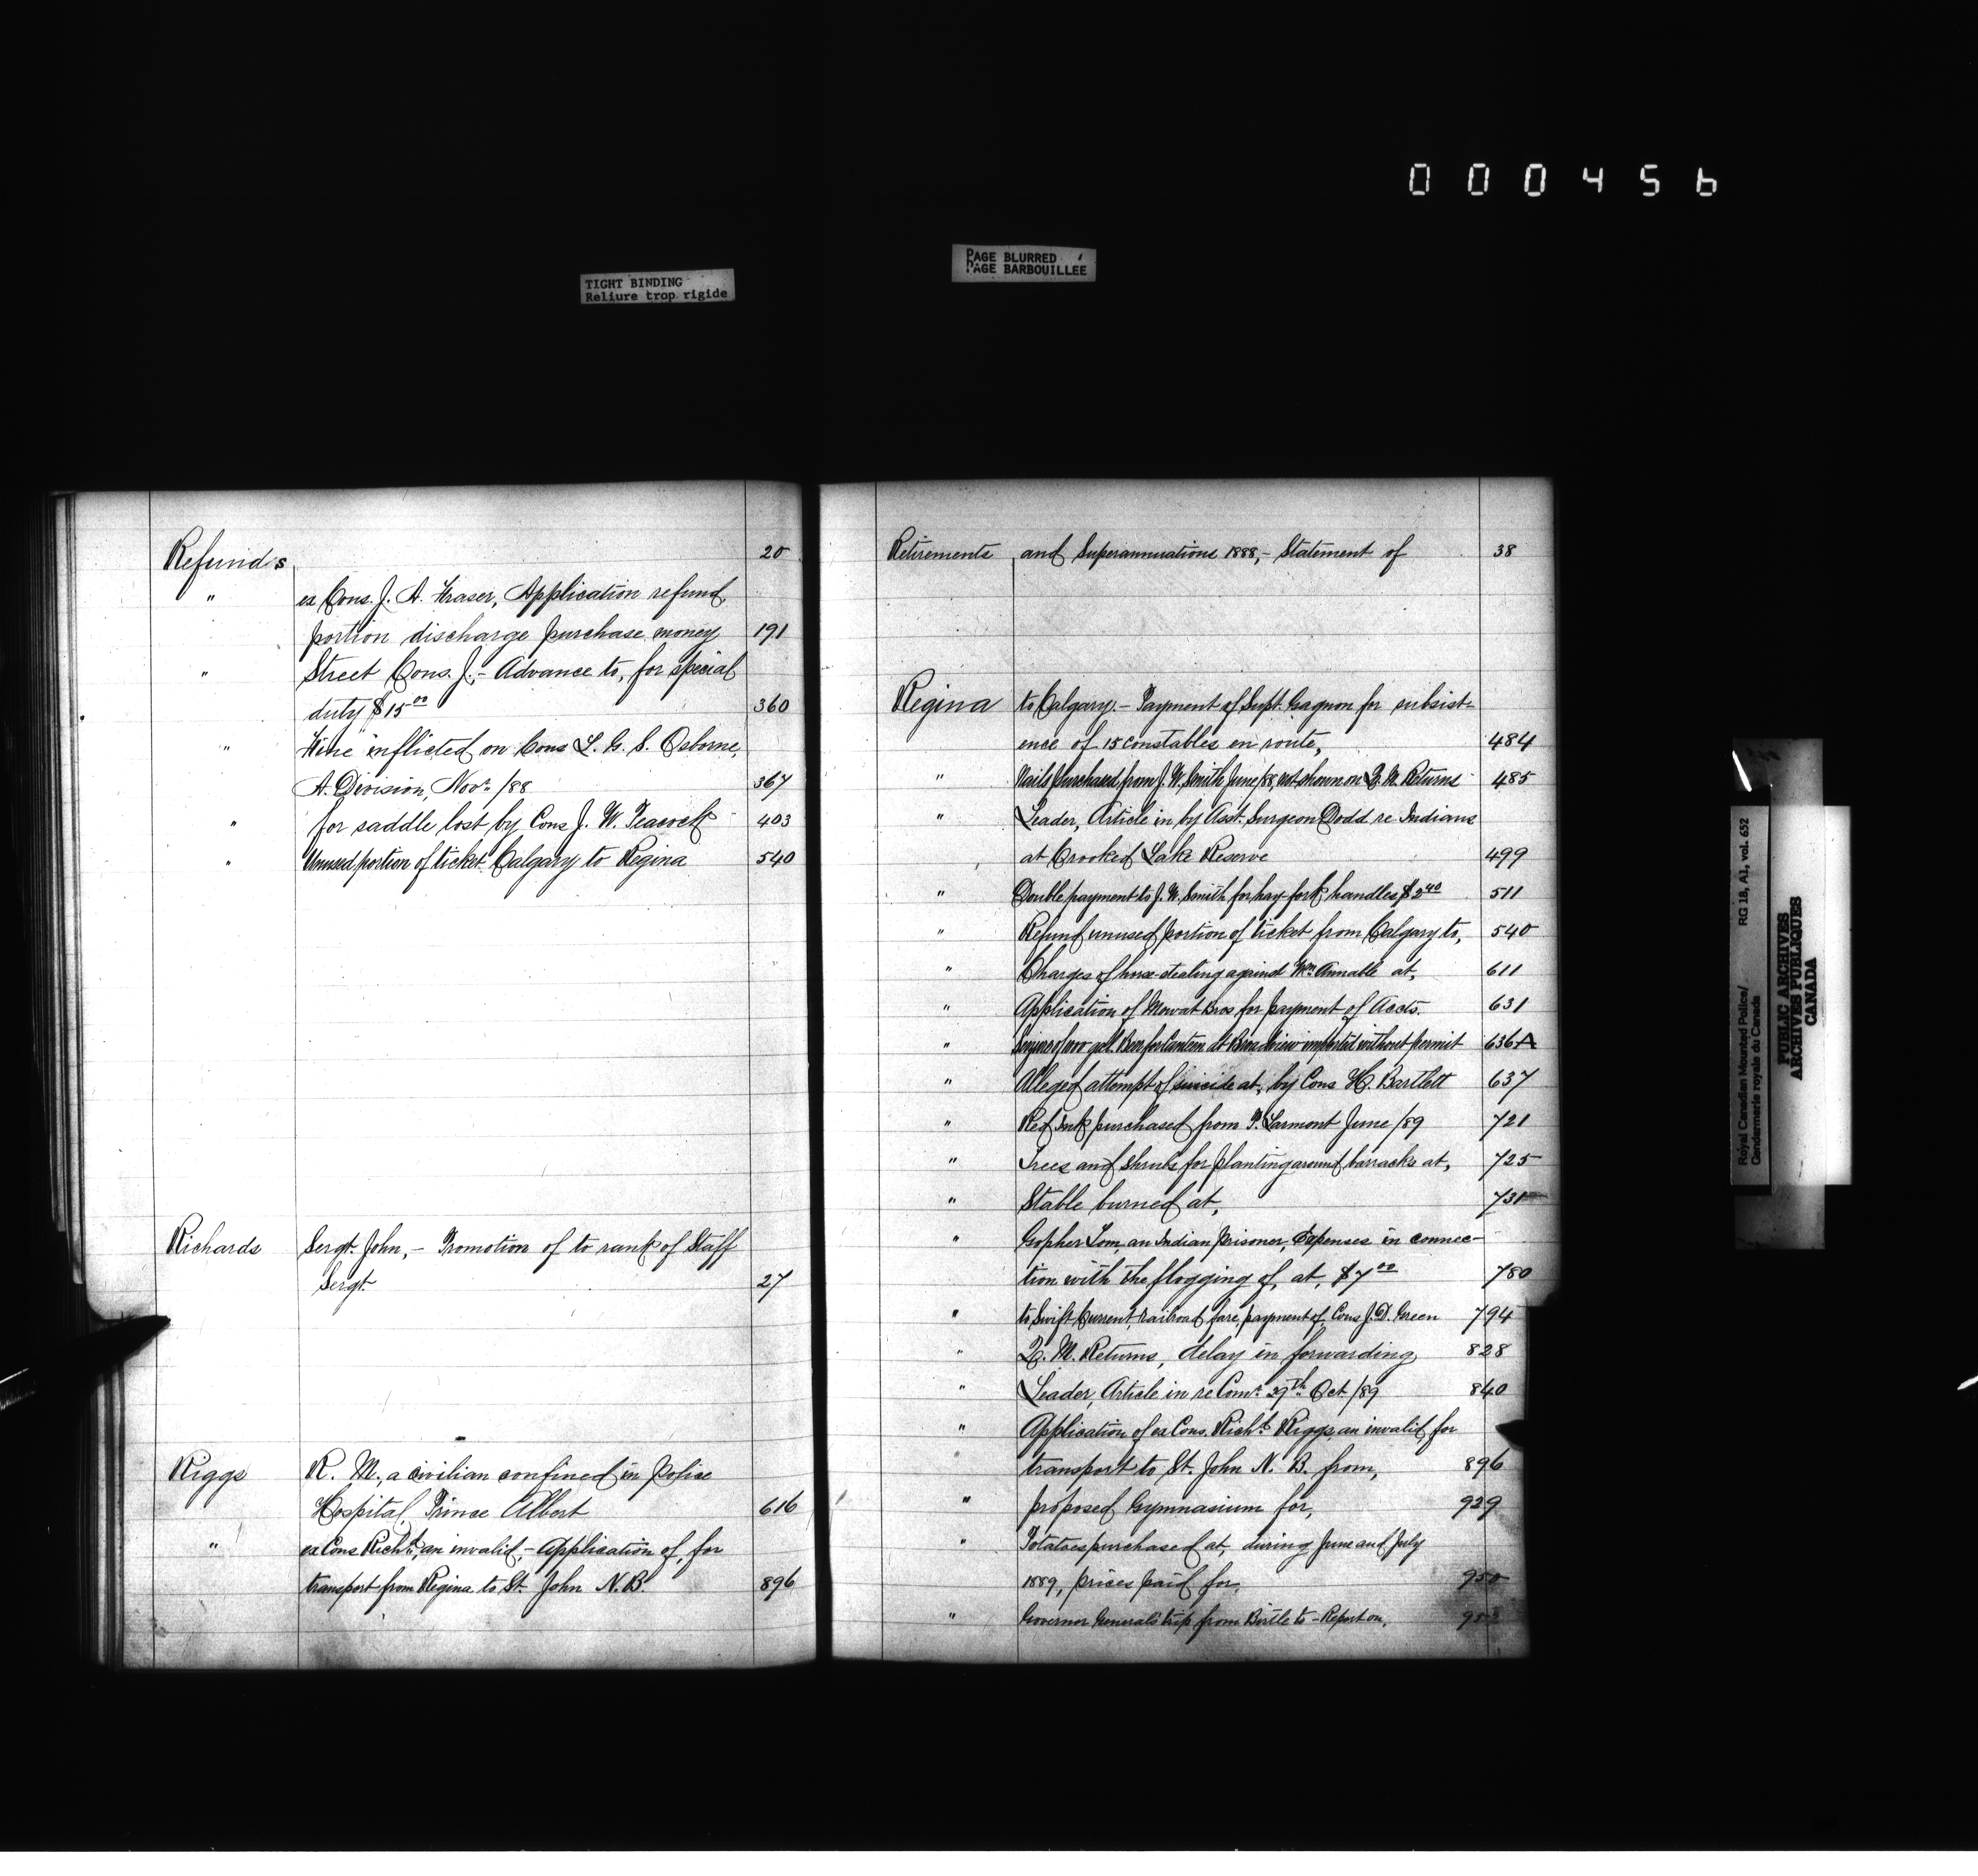 000456
TIGHT BINDING
Reliure trop rigide
PAGE BLURRED
PAGE BARBOUILLEE
Refunds 20
" ex Cons. J. A. Fraser, Application refund,
portion discharge purchase money 191
" Street Cons. J. - Advance to, for special
duty $15 00 360
" Fine inflicted on Cons L. G. S. Osborne,
A. Division, Novr /88 367
" for saddle lost by Cons J. W. Peacock 403
" Unused portion of ticket Calgary to Regina 540
Richards Sergt. John, - Promotion of to rank of Staff
Sergt. 27
Riggs R. M., a civilian confined in Police
Hospital, Prince Albert 616
" ex Cons Richd, an invalid, - Application of, for
transport from Regina to St. John N.B. 896
Retirements and Superannuations 1888, - Statement of 38
Regina to Calgary. - Payment of Supt. Gagnon for subsist-
ence of 15 constables en route, 484
" Nails purchased from J. W. Smith June/88, not shown on Q. M. Returns 485
" Leader, Article in by Asst. Surgeon Dodd re Indians
at Crooked Lake Reserve 499
" Double payment to J. W. Smith for hay-fork handles $2 40 511
" Refund unused portion of ticket from Calgary to, 540
" Charges of horse-stealing against Wm Annable at, 611
" Application of Mowat Bros for payment of Accts. 631
" Seizure of gall. Beer for Canteen at Broadview imported without permit 636A
" Alleged attempt of suicide at, by Cons H. Bartlett 637
" Red Ink purchased from P. Larmont June /89 721
" Trees and shrubs for planting around barracks at, 725
" Stable burned at, 731
" Gopher Tom, an Indian prisoner, Expenses in connec-
tion with the flogging of, at, $7 00 780
" to Swift Current, railroad fare, payment of, Cons J. D. Green 794
" Q. M. Returns, delay in forwarding 828
" Leader, Article in re Comr 29th Oct /89 840
" Application of ex Cons. Richd Riggs, an invalid, for
" transport to St. John N. B. from, 896
" proposed Gymnasium for, 929
" Potatoes purchased at, during June and July
1889, prices paid for, 950
" Governor General's trip from Birtle to - Report on,
Royal Canadian Mounted Police/ RG 18, A1, vol. 652
Gendarmerie royale du Canada
PUBLIC ARCHIVES
ARCHIVES PUBLIQUES
CANADA